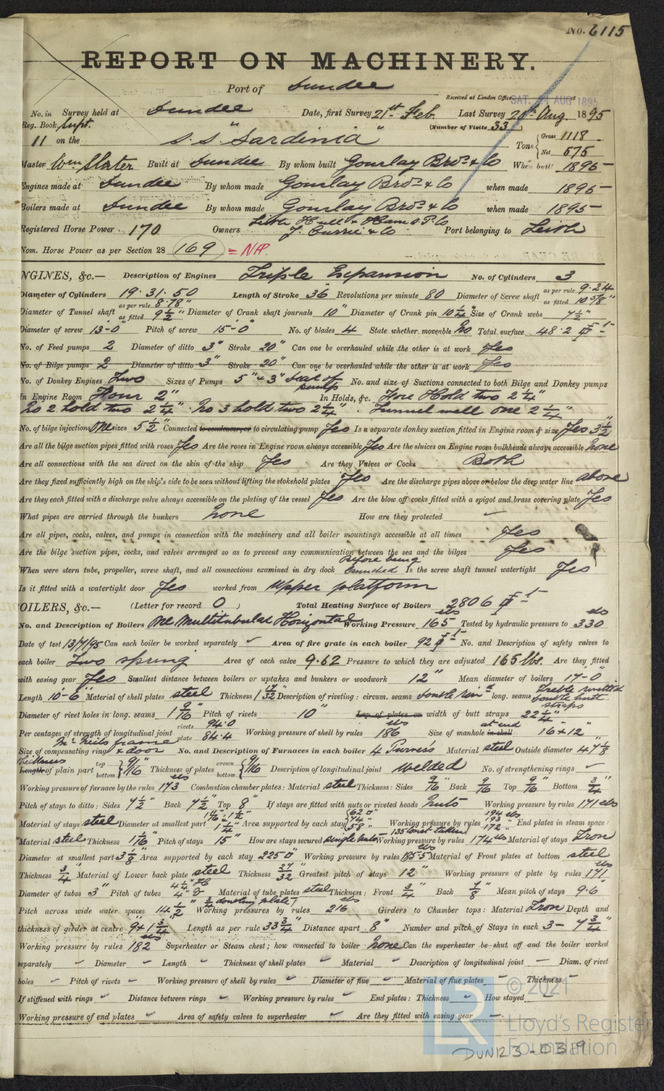 No. 6115
REPORT ON MACHINERY.
Port of Dundee
Received at London Office SAT. AUG 1895
No. in Survey held at Dundee Date, first Survey 21st Feb. Last Survey 20th Aug. 1895
Reg. Book. Supt. (Number of Visits 33)
11 on the S.S. "Sardinia" Tons Gross 1118 Net 675
Master Wm Slater Built at Dundee By whom built Gourlay Bros & Co When built 1895
Engines made at Dundee By whom made Gourlay Bros & Co when made 1895
Boilers made at Dundee By whom made Gourlay Bros & Co when made 1895
Registered Horse Power 170 Owners Leith Hull & Ham S P Co J. Currie & Co. Port belonging to Leith
Nom. Horse Power as per Section 28 169 = NHP
ENGINES, &c.— Description of Engines Triple Expansion No. of Cylinders 3
Diameter of Cylinders 19.31.50 Length of Stroke 36 Revolutions per minute 80 Diameter of Screw shaft as per rule 9.24 as fitted 10 5/8"
Diameter of Tunnel shaft as per rule 8.78" as fitted 9 1/2" Diameter of Crank shaft journals 10" Diameter of Crank pin 10 1/2" Size of Crank webs 7 1/2"
Diameter of screw 13-0" Pitch of screw 15-0" No. of blades 4 State whether moveable No Total surface 48.2
No. of Feed pumps 2 Diameter of ditto 3" Stroke 20" Can one be overhauled while the other is at work Yes
No. of Bilge pumps 2 Diameter of ditto 3" Stroke 20" Can one be overhauled while the other is at work Yes
No. of Donkey Engines Two Sizes of Pumps 5" & 3" No. and size of Suctions connected to both Bilge and Donkey pumps
In Engine Room Four 2" In Holds, &c. Fore Hold two 2 1/4"
No 2 hold two 2 1/4" No 3 hold two 2 1/4" Tunnel well one 2 1/4"
No. of bilge injections One sizes 5 1/2 Connected to condenser, or to circulating pump Yes Is a separate donkey suction fitted in Engine room & size Yes 3 1/2
Are all the bilge suction pipes fitted with roses Yes Are the roses in Engine room always accessible Yes Are the sluices on Engine room bulkheads always accessible none
Are all connections with the sea direct on the skin of the ship Yes Are they Valves or Cocks Both
Are they fixed sufficiently high on the ship's side to be seen without lifting the stokehold plates Yes Are the discharge pipes above or below the deep water line above
Are they each fitted with a discharge valve always accessible on the plating of the vessel Yes Are the blow off cocks fitted with a spigot and brass covering plate Yes
What pipes are carried through the bunkers none How are they protected
Are all pipes, cocks, valves, and pumps in connection with the machinery and all boiler mountings accessible at all times Yes
Are the bilge suction pipes, cocks, and valves arranged so as to prevent any communication between the sea and the bilges Yes
When were stern tube, propeller, screw shaft, and all connections examined in dry dock Before being launched Is the screw shaft tunnel watertight Yes
Is it fitted with a watertight door Yes worked from Upper platform
BOILERS, &c.— (Letter for record O) Total Heating Surface of Boilers 2806
No. and Description of Boilers One Multitubular Horizontal Working Pressure 165 lbs Tested by hydraulic pressure to 330 lbs
Date of test 13/7/95 Can each boiler be worked separately Area of fire grate in each boiler 92 No. and Description of safety valves to
each boiler Two spring Area of each valve 9.62 Pressure to which they are adjusted 165 lbs. Are they fitted
with easing gear Yes Smallest distance between boilers or uptakes and bunkers or woodwork 12" Mean diameter of boilers 17-0
Length 10-6" Material of shell plates steel Thickness 1 Description of riveting: circum. seams double long. seams treble riveted double butt straps
Diameter of rivet holes in long. seams Pitch of rivets 10" Lap of plates or width of butt straps 22 1/4"
Per centages of strength of longitudinal joint rivets 94.0 plate 84.4 Working pressure of shell by rules 186 Size of manhole in shell at end 16 x 12"
Size of compensating ring McNeils frame & door No. and Description of Furnaces in each boiler 4 Purves Material steel Outside diameter
Length of plain part top 9/16 bottom 9/16 Thickness of plates crown 9/16 bottom 9/16 Description of longitudinal joint welded No. of strengthening rings
Working pressure of furnace by the rules 173 Combustion chamber plates: Material steel Thickness: Sides 9/16 Back 9/16 Top 9/16 Bottom 3/4
Pitch of stays to ditto: Sides 7 1/2" Back 7 1/2" Top 8" If stays are fitted with nuts or riveted heads nuts Working pressure by rules 171 lbs
Material of stays steel Diameter at smallest part Area supported by each stay Working pressure by rules End plates in steam space:
Material steel Thickness Pitch of stays 15" How are stays secured Double nuts Working pressure by rules 174 lbs Material of stays Iron
Diameter at smallest part Area supported by each stay 225.0 Working pressure by rules Material of Front plates at bottom steel
Thickness 3/4 Material of Lower back plate steel Thickness 27/32 Greatest pitch of stays 12" Working pressure of plate by rules 171
Diameter of tubes 3" Pitch of tubes Material of tube plates steel Thickness: Front 3/4 Back Mean pitch of stays 9.6"
Pitch across wide water spaces 14 1/2" Working pressures by rules 216 Girders to Chamber tops: Material Iron Depth and
thickness of girder at centre Length as per rule 33 3/4 Distance apart 8" Number and pitch of Stays in each 3 - 7 3/4"
Working pressure by rules 182 Superheater or Steam chest; how connected to boiler none Can the superheater be shut off and the boiler worked
separately Diameter Length Thickness of shell plates Material Description of longitudinal joint Diam. of rivet
holes Pitch of rivets Working pressure of shell by rules Diameter of flue Material of flue plates Thickness
If stiffened with rings Distance between rings Working pressure by rules End plates: Thickness How stayed
Working pressure of end plates Area of safety valves to superheater Are they fitted with easing gear
© 2021
LR
Lloyd's Register
Foundation
DUN123-0319